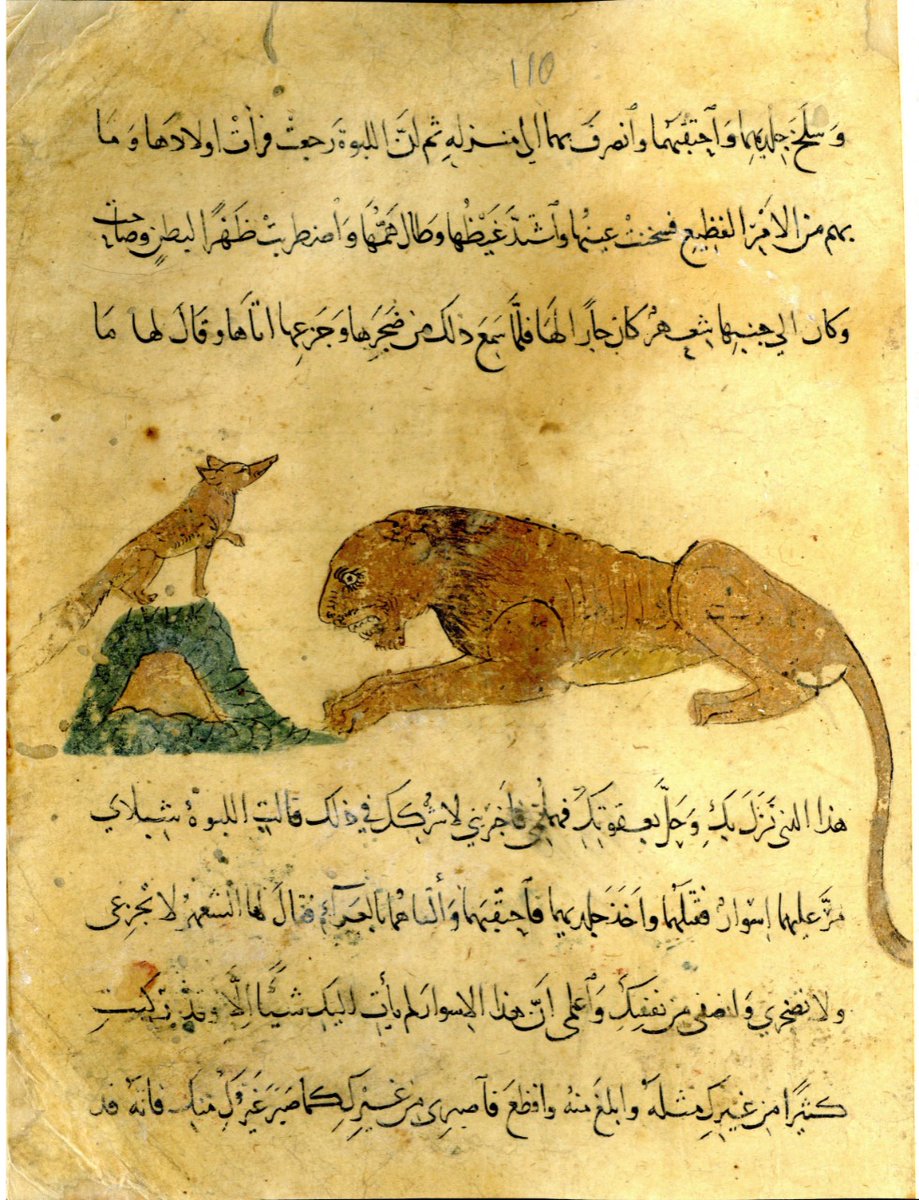 110
وَسَلَخَ جِلديهما وَاَحتقبهُما وَاَنصرفَ بهما الى منزلهِ ثم انَّ اللبوةَ رَجعتْ فرأتْ اولادَها وَما
بهم من الامرِ الفظِيعِ فسخنتْ عينها وَاَشتدَّ غيَظُها وَطال هَمُّها وَاضطربتْ ظَهْرًا لبطنٍ وصاحت
وَكان الي جنبها شعهرٌ كان جارًا لَها فلمَّا سمعَ ذلك من ضجَرِها وَجزعها اتاها وقالَ لها ما
هذا الذى نَزَلَ بكِ وَحَلَّ بعقوتكِ فهلمّى فأخبريني لاشركك في ذلك قالتِ اللبوةُ شبلاي
مَرَّ عليهما اِسْوارٌ فقتلهُما وَاخذَ جلديهما فاَحتقبهما وَألقاهما بالعراءِ فقالَ لها الشعهر لا تجزعى
ولا تضجري وَانصفى من نفسِكِ وَاَعلمى انَّ هذا الاسوارَ لم يأتِ اليكِ شيئًا اِلَّا وقد ركبتِ
كثيرًا من غيركِ مثلهُ وابلغَ منهُ وافظعَ فاَصبرى من غيركِ كما صبرَ غيركِ منكِ فانهُ قد